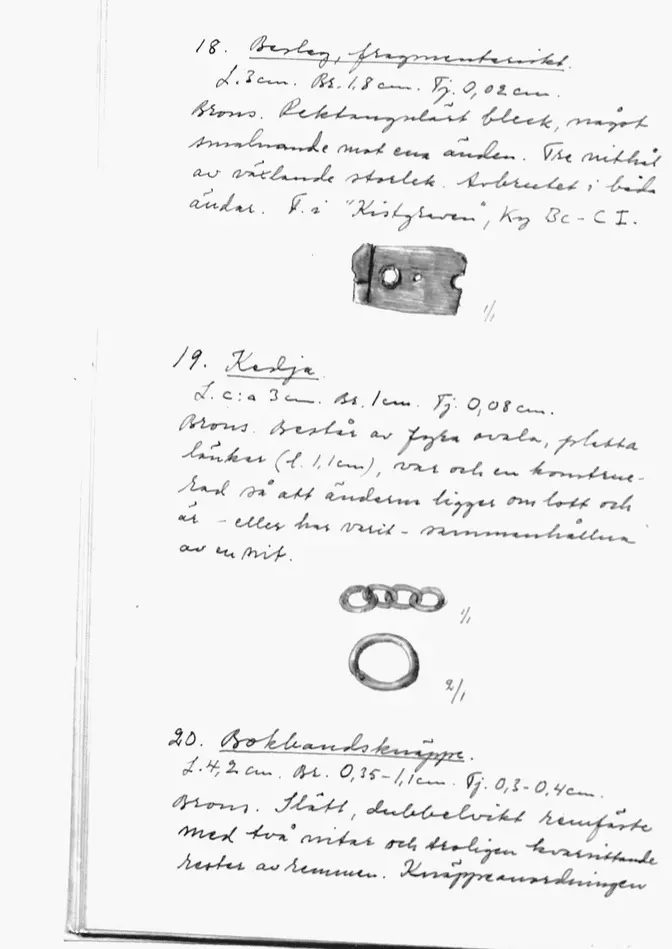 18. Beslag, fragmentariskt.
L. 3 cm. Br. 1,8 cm. Tj. 0,02 cm.
Brons. Rektangulärt bleck, något
smalnande mot ena änden. Tre nithål
av växlande storlek. Avbrutet i båda
ändar. F. i "Kistgraven", Ky Bc - C I.
1/1
19. Kedja
L. c:a 3 cm. Br. 1 cm. Tj. 0,08 cm.
Brons. Består av fyra ovala, platta
länkar (l. 1,1 cm), var och en konstrue-
rad så att ändarna ligger om lott och
är - eller har varit - sammanhållna
av en nit.
1/1
2/1
20. Bokbandsknäppe.
L. 4,2 cm. Br. 0,35-1,1 cm. Tj. 0,3-0,4 cm.
Brons. Slätt, dubbelvikt remfäste
med två nitar och troligen kvarsittande
rester av remmen. Knäppeanordningen